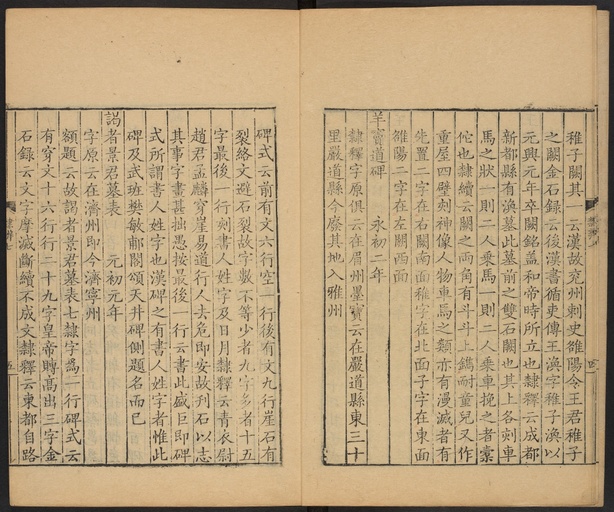 稚子闕其一云漢故兗州刺史雒陽令王君稚子
之闕金石録云後漢書循吏傳王渙字稚子渙以
元興元年卒闕銘蓋和帝時所立也隸釋云成都
新都縣有渙墓此墓前之雙石闕也其上各刻車
馬之狀一則二人乘馬一則二人乘車挽之者橐
佗也隸續云闕之兩角有斗斗上鐫耐童兒又作
重屋四壁刺神像人物車馬之類亦有漫滅者有
先置二字在右闕南面稚字在北面子字在東面
雒陽二字在左闕西面
羊竇道碑　永初二年
隸釋字原俱云在眉州墨寶云在嚴道縣東三十
里嚴道縣今廢其地入雅州
碑式云前有文六行空一行後有文九行崖石有
裂絡文避石裂故字數不等少者九字多者十五
字最後一行刻書人姓字及日月隸釋云青衣尉
趙君孟麟穿崖易道行人去危即安故刋石以志
其事字書甚拙愚按最後一行云書此盛巨即碑
式所謂書人姓字也漢碑之有書人姓字者惟此
碑及武班樊敏郙閣頌天井碑側題名而已
謁者景君墓表　元初元年
字原云在濟州即今濟寧州
額題云故謁者景君墓表七隸字爲一行碑式云
有穿文十六行行二十九字皇帝聘高出三字金
石録云文字摩滅斷續不成文隸釋云東都自路